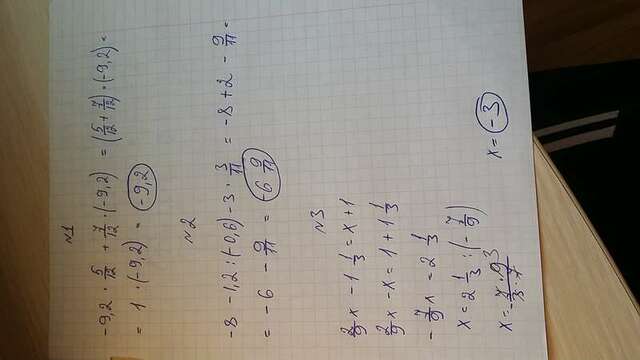 №1
-9,2 · 5/12 + 7/12 · (-9,2) = (5/12 + 7/12) · (-9,2) =
= 1 · (-9,2) = -9,2
№2
-8 - 1,2 : (-0,6) - 3 · 3/11 = -8 + 2 - 9/11 =
= -6 - 9/11 = -6 9/11
№3
2/9 x - 1 1/3 = x + 1
2/9 x - x = 1 + 1 1/3
- 7/9 x = 2 1/3
x = 2 1/3 : (- 7/9)
x = - 7 · 9 3 / 3 · 7 x = -3